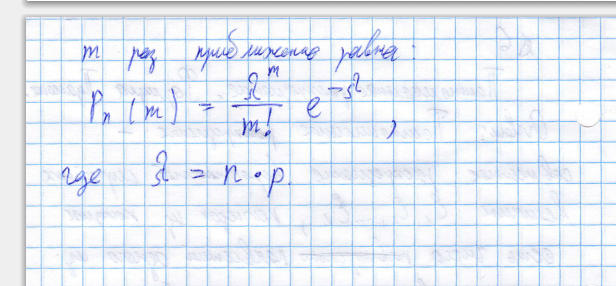 m раз приближенно равна:
Pn (m) = λ^m / m! e^-λ,
где λ = n · p.